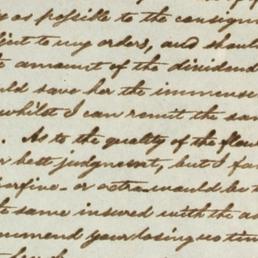 as possible to the consign
ject to my orders, and shou
amount of the dividend
uld save her the immense
whilst I can remit the sam
. As to the quality of the flou
r best judgment, but I fa
perfine - or extra would be t
t same insured with the a
mmend your losing no tim